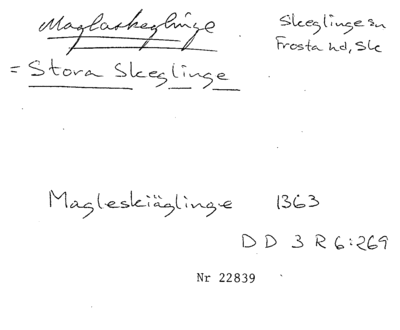 Maglaskeglinge
Skeglinge sn
Frosta hd, Sk
= Stora Skeglinge
Magleskiäglinge 1363
DD 3 R 6:269
Nr 22839